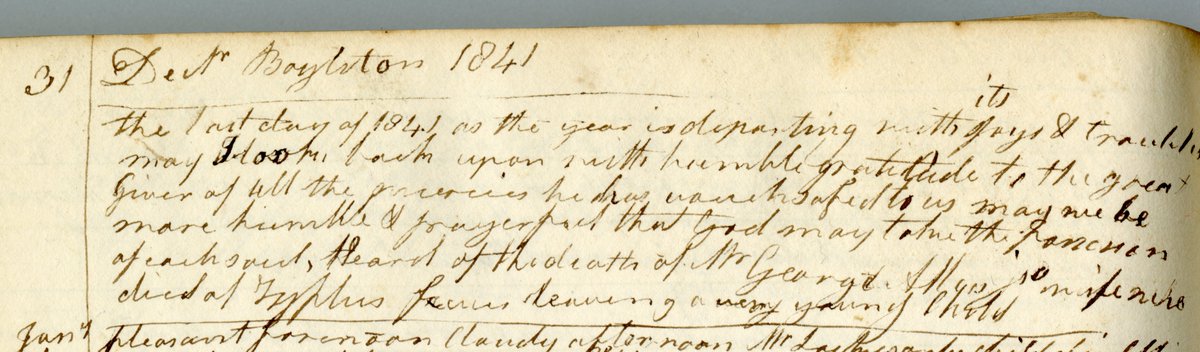 31 Decr Boylston 1841
the last day of 1841 as the year is departing with its joys &
may I look back upon with humble gratitude to the great
Giver of all the mercies he has vouchsafed to us may we be
more humble & prayerful that God may take the
of each soul, Heard of the death of Mr George wife who
died of Typhus fever leaving a very young Child
Jany pleasant forenoon Cloudy afternoon Mr